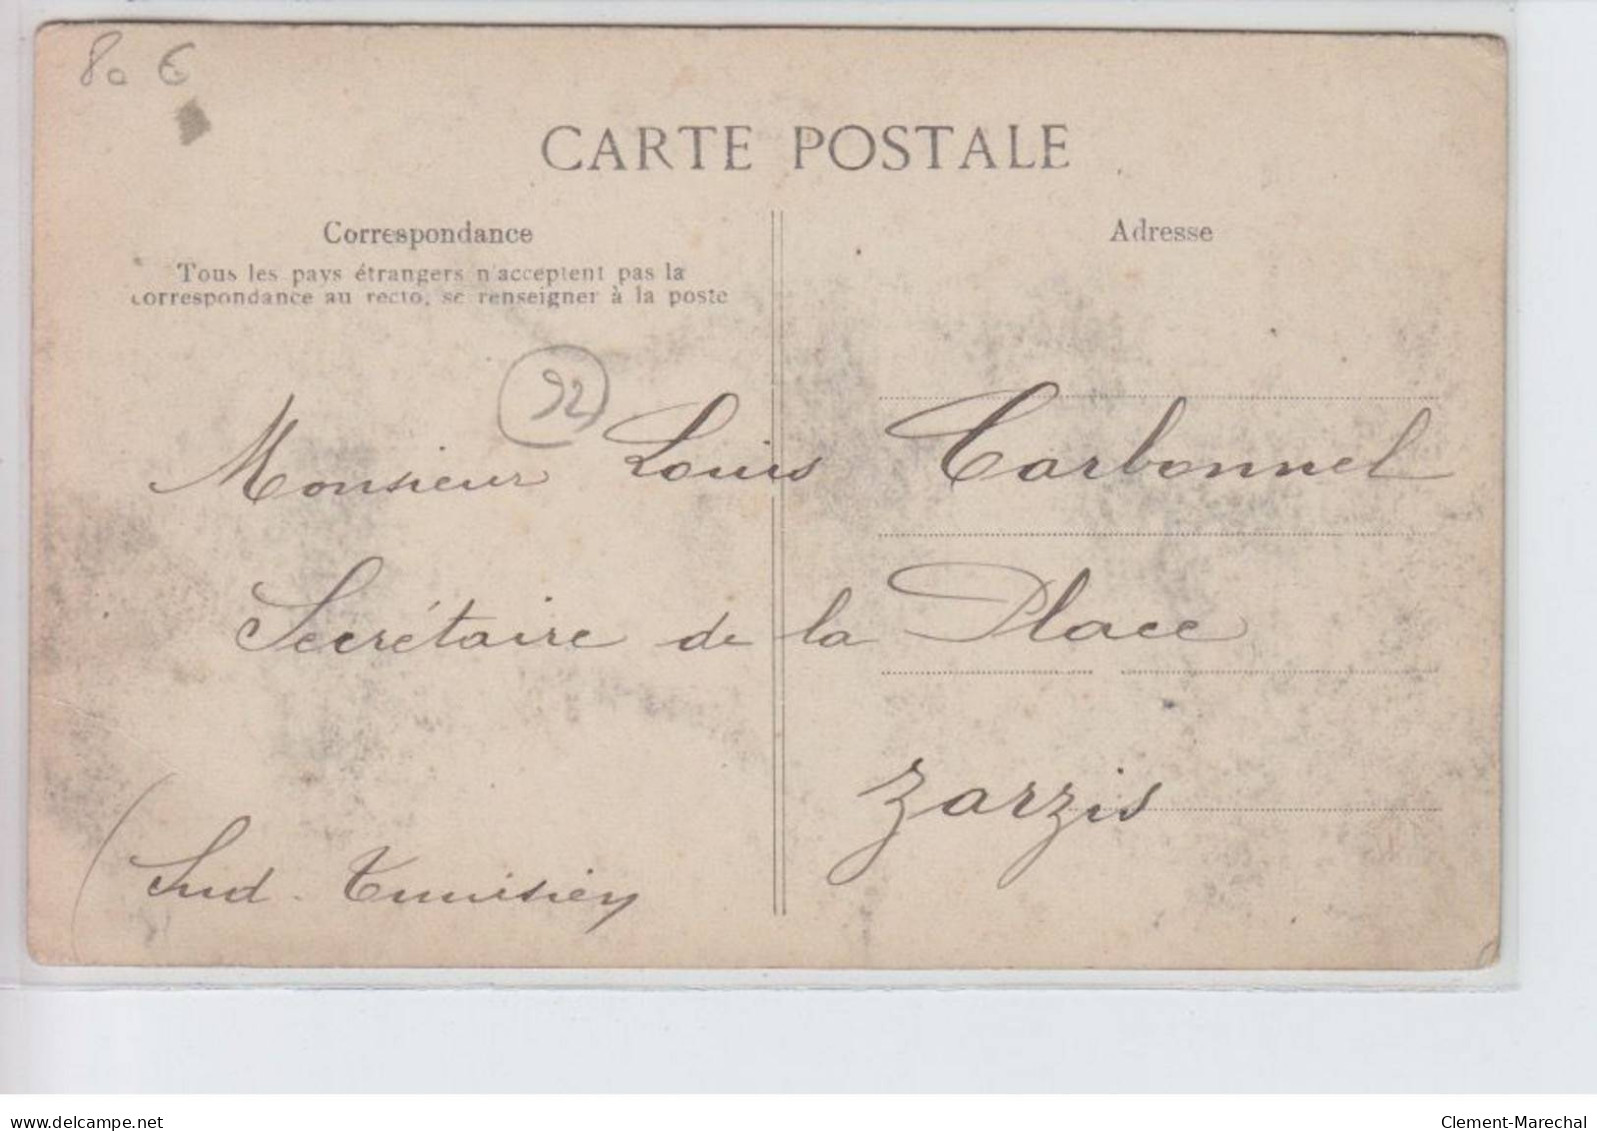 80 €
CARTE POSTALE
Correspondance
Tous les pays étrangers n'acceptent pas la
correspondance au recto, se renseigner à la poste
Adresse
92
Monsieur Louis Carbonnel
Secrétaire de la Place
Zarzis
(Sud-Tunisien
www.delcampe.net
Clement-Marechal